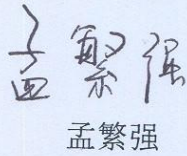 孟繁强
孟繁强